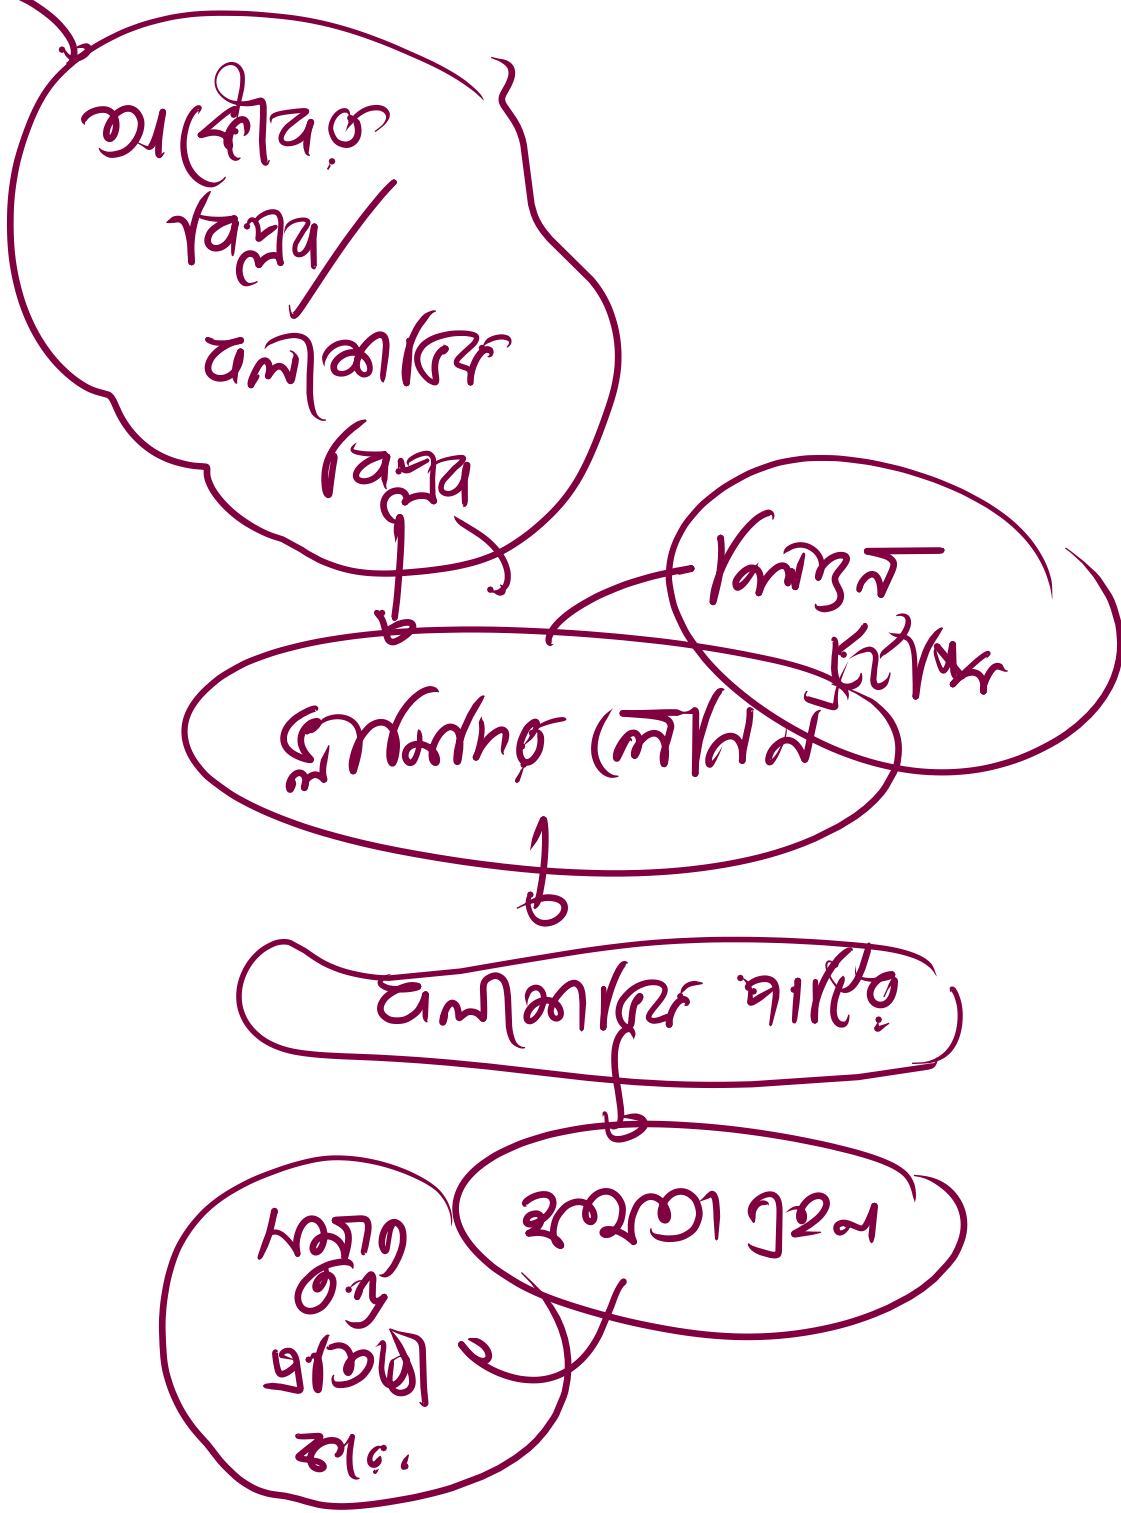 অক্টোবর
বিপ্লব/
বলশেভিক
বিপ্লব
লিওন
ট্রটস্কি
ভ্লাদিমির লেনিন
বলশেভিক পার্টির
ক্ষমতা গ্রহন
সমাজ
তন্ত্র
প্রতিষ্ঠা
করে.